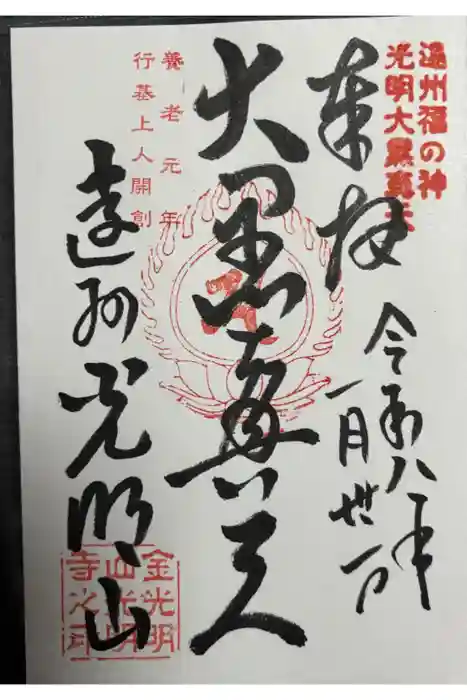 遠州福の神
光明大黒真天
奉拝
令和八年
一月丗一日
大黒真天
養老元年
行基上人開創
遠州光明山
金光明
山光明
寺之印